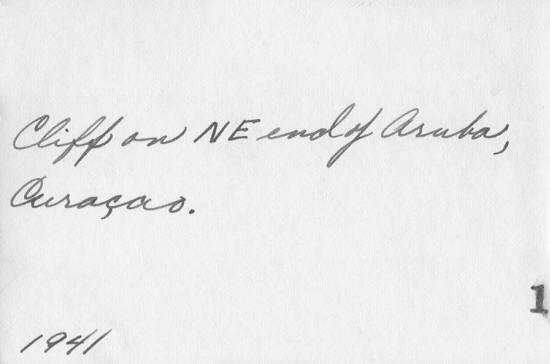 Cliff on NE end of Aruba,
Curaçao.
1
1941